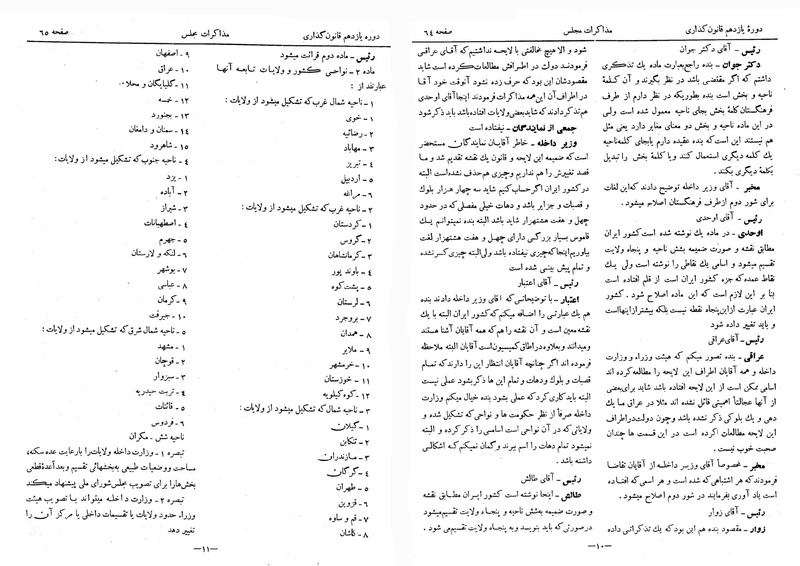 دوره یازدهم قانون گذاری
مذاکرات مجلس
صفحه ٦٤
رئیس - آقای دکتر جوان
دکتر جوان - بنده راجع بعبارت ماده یك تذکری
داشتم که اگر مقتضی باشد در نظر بگیرند و آن کلمهٔ
ناحیه و بخش است بنده بطوریکه در نظر دارم از طرف
فرهنگستان کلمهٔ بخش بجای ناحیه معمول شده است ولی
در این ماده ناحیه و بخش دو معنای مغایر دارد یعنی مثل
هم نیستند این است که بنده عقیده دارم یابجای کلمه ناحیه
یك کلمه دیگری استعمال کنند ویا کلمهٔ بخش را تبدیل
بکلمهٔ دیگری بکنند.
مخبر - آقای وزیر داخله توضیح دادند که این لغات
برای شور دوم از طرف فرهنگستان اصلاح میشود.
رئیس - آقای اوحدی
اوحدی - در ماده یك نوشته شده است کشور ایران
مطابق نقشه و صورت ضمیمه بشش ناحیه و پنجاه ولایت
تقسیم میشود و اسامی یك نقاطی را نوشته است ولی یك
نقاط عمده که جزء کشور ایران است از قلم افتاده است
بنا بر این لازم است که این ماده اصلاح شود. کشور
ایران عبارت از این پنجاه نقطه نیست بلکه بیشتر از اینهااست
و باید تغییر داده شود
رئیس - آقای عراقی
عراقی - بنده تصور میکنم که هیئت وزراء و وزارت
داخله و همه آقایان اطراف این لایحه را مطالعه کرده اند
اسامی ممکن است از این لایحه افتاده باشد شاید برای بعضی
از آنها عجالتاً اهمیتی قائل نشده اند مثلا در عراق ما یك
دهی و یك بلوکی ذکر نشده باشد وچون دولت در اطراف
این لایحه مطالعات کرده است در این قسمت ها چندان
صحبت خوب نیست.
مخبر - خصوصاً آقای وزیر داخله از آقایان تقاضا
فرمودند که هر اشتباهی که شده است و هر اسمی که افتاده
است یاد آوری بفرمایند در شور دوم اصلاح میشود.
رئیس - آقای زوار
زوار - مقصود بنده هم این بود که یك تذکراتی داده
شود و الا هیچ مخالفتی با لایحه نداشتیم که آقای عراقی
فرمودند دولت در اطرافش مطالعات کرده است شاید
مقصودشان این بود که حرف زده نشود آنوقت خود آقا
در اطراف آن این همه مذاکرات فرمودند اینجا آقای اوحدی
هم تذکر دادند که شاید بعضی ولایات افتاده باشد باید ذکر شود
جمعی از نمایندگان - نیفتاده است
وزیر داخله - خاطر آقایان نمایندگان مستحضر
است که ضمیمه این لایحه و قانون یك نقشه تقدیم شد و ما
قصد تغییرش را هم نداریم و چیزی هم حذف نشده است البته
در کشور ایران اگر حساب کنیم شاید سه چهار هزار بلوك
و قصبات و جزایر باشد و دهات خیلی مفصلی که در حدود
چهل و هفت هشتهزار شاید باشد البته بنده نمیتوانم یك
قاموس بسیار بزرگی دارای چهل و هفت هشتهزار لغت
بیاوریم اینجا که چیزی نیفتاده باشد ولی البته چیزی کسر نشده
و تمام پیش بینی شده است
رئیس - آقای اعتبار
اعتبار - با توضیحاتی که آقای وزیر داخله دادند بنده
هم یك عبارتی را اضافه میکنم که کشور ایران البته با یك
نقشه معین است و آن نقشه را هم که همه آقایان آشنا هستند
ومیدانند و بعلاوه در اطاق کمیسیون است آقایان البته ملاحظه
فرموده اند اگر چنانچه آقایان انتظار این را دارند که تمام
قصبات و بلوك ودهات و تمام این ها ذکر بشود عملی نیست
البته باید کاری کرد که عملی بشود بنده خیال میکنم وزارت
داخله صرفاً از نظر حکومت ها و نواحی که تشکیل شده و
ولایاتی که در آن نواحی است اسامی را ذکر کرده و البته
نمیشود تمام دهات را اسم ببرند و گمان نمیکنم که اشکالی
داشته باشد.
رئیس - آقای طالش
طالش - اینجا نوشته است کشور ایران مطابق نقشه
و صورت ضمیمه بشش ناحیه و پنجاه ولایت تقسیم میشود
در صورتی که باید بنویسد و به پنجاه ولایت تقسیم می شود.
—۱۰—
دوره یازدهم قانون گذاری
مذاکرات مجلس
صفحه ٦٥
رئیس - ماده دوم قرائت میشود
ماده ۲ - نواحی کشور و ولایات تابعه آنها
عبارتند از:
۱ - ناحیه شمال غرب که تشکیل میشود از ولایات:
۱ - خوی
۲ - رضائیه
۳ - مهاباد
٤ - تبریز
٥ - اردبیل
٦ - مراغه
۲ - ناحیه غرب که تشکیل میشود از ولایات:
۱ - کردستان
۲ - گروس
۳ - کرمانشاهان
٤ - باوند پور
٥ - پشت کوه
٦ - لرستان
۷ - بروجرد
۸ - همدان
۹ - ملایر
۱۰ - خرمشهر
۱۱ - خوزستان
۱۲ - کوه کیلویه
۳ - ناحیه شمال که تشکیل میشود از ولایات:
۱ - گیلان
۲ - تنکابن
۳ - مازندران
٤ - گرگان
٥ - طهران
٦ - قزوین
۷ - قم و ساوه
۸ - کاشان
۹ - اصفهان
۱۰ - عراق
۱۱ - گلپایگان و محلات
۱۲ - خمسه
۱۳ - بجنورد
۱٤ - سمنان و دامغان
۱٥ - شاهرود
٤ - ناحیه جنوب که تشکیل میشود از ولایات:
۱ - یزد
۲ - آباده
۳ - شیراز
٤ - اصطهبانات
٥ - جهرم
٦ - لنگه و لارستان
۷ - بوشهر
۸ - عباسی
۹ - کرمان
۱۰ - جیرفت
٥ - ناحیه شمال شرق که تشکیل میشود از ولایات:
۱ - مشهد
۲ - قوچان
۳ - سبزوار
٤ - تربت حیدریه
٥ - قائنات
٦ - فردوس
ناحیه شش. مکران
تبصره ۱ - وزارت داخله ولایات را بارعایت عده سکنه،
مساحت ووضعیات طبیعی به بخشهائی تقسیم و بعداً عدهٔ قطعی
بخش ها را برای تصویب مجلس شورای ملی پیشنهاد میکند
تبصره ۲ - وزارت داخله میتواند با تصویب هیئت
وزراء، حدود ولایات یا تقسیمات داخلی یا مرکز آن را
تغییر دهد
—۱۱—